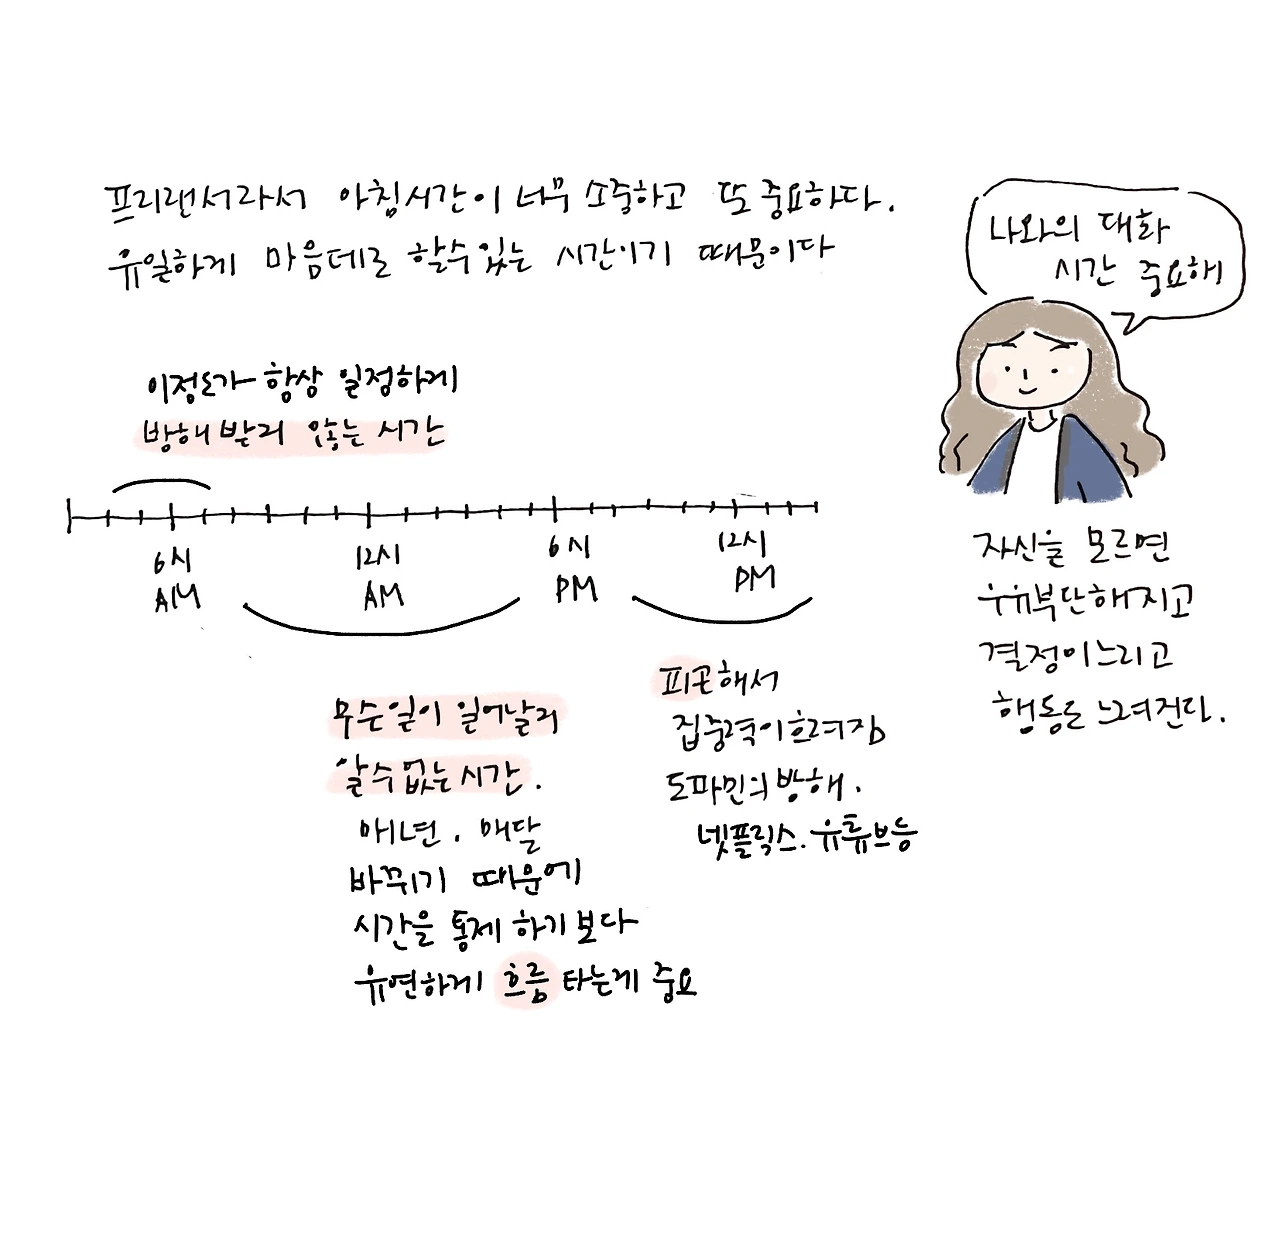 프리랜서라서 아침시간이 너무 소중하고 또 중요하다.
유일하게 마음데로 할수있는 시간이기 때문이다
나와의 대화
시간 중요해
이정도가 항상 일정하게
방해 받지 않는 시간
6시
AM
12시
AM
6시
PM
12시
PM
무슨일이 일어날지
알수없는 시간.
매년. 매달
바뀌기 때문에
시간을 통제 하기보다
유연하게 흐름 타는게 중요
피곤해서
집중력이흐려짐
도파민의 방해.
넷플릭스. 유튜브등
자신을 모르면
우유부단해지고
결정이느리고
행동도 느려진다.